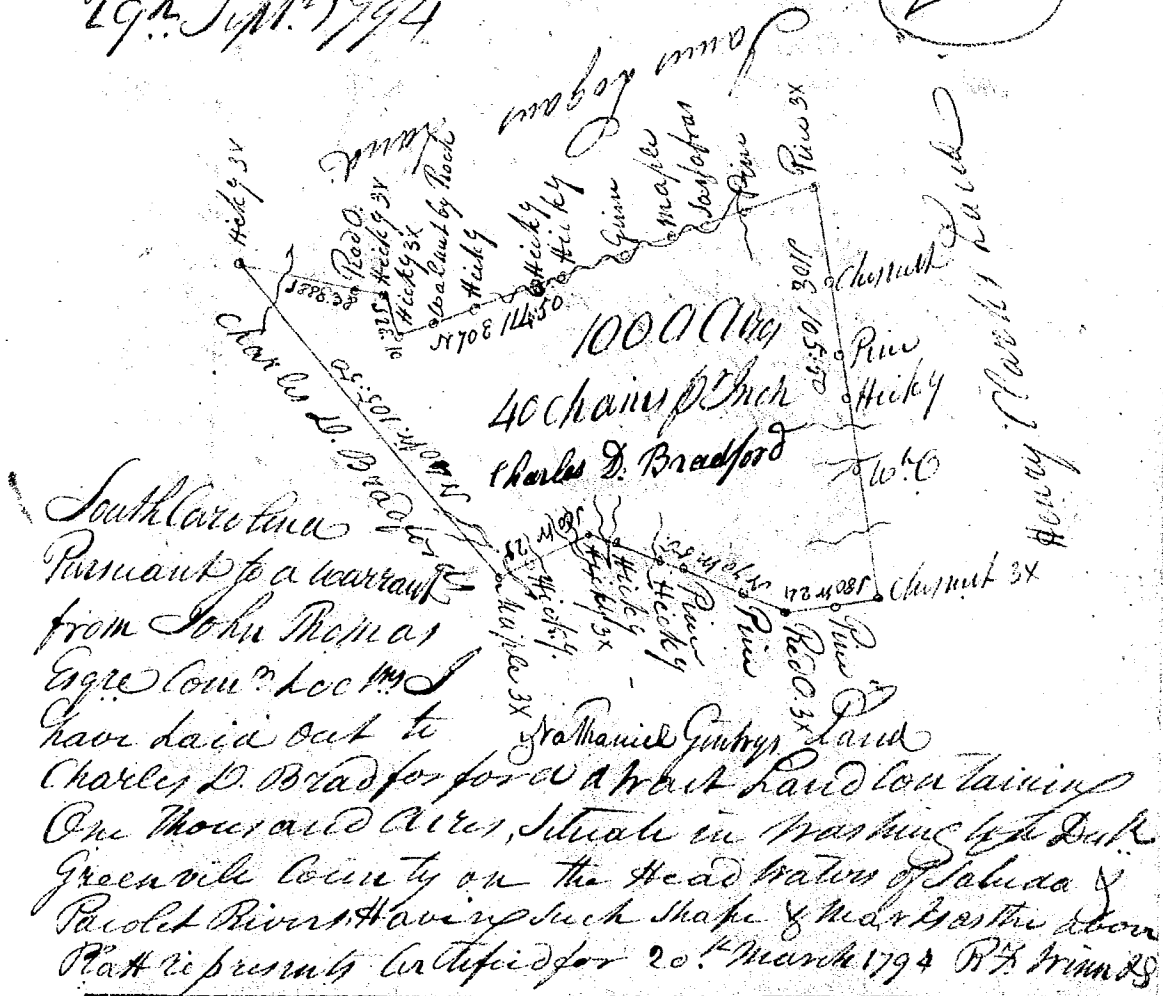 29th Septr. 1794
James Logans Land
Hicky 3X
Red O.
Hicky 3X
Hicky 3X
Walnut by Rock
Hicky
Hicky
Hicky
Gum
Maple
Sassafras
Pine
Pine 3X
S88E 38
N70E 114:50
S10E 105:50
Chesnutt
Pine
Hicky
Wh. O
Henry Clarks Land
1000 Acres
40 Chains pr. Inch
Charles D. Bradford
Charles D. Bradford
N40W. 105:50
S60W 29
S80W 24
Maple 3X
Hicky.
Hicky 3X
Hicky
Hicky
Pine
Pine
Red O. 3X
Pine
Chesnut 3X
Nathaniel Gentrys Land
South Carolina
Pursuant to a warrant
from John Thomas
Esqre Comr. Locns I
have Laid out to
Charles D. Bradforford a tract Land Containing
One Thousand Acres, Situate in Washington Distr.
Greenvile County on the Head Waters of Saluda &
Pacolet Rivers Having Such Shape & Marks as the above
Platt represents Certified for 20th March 1794 R Winn DS